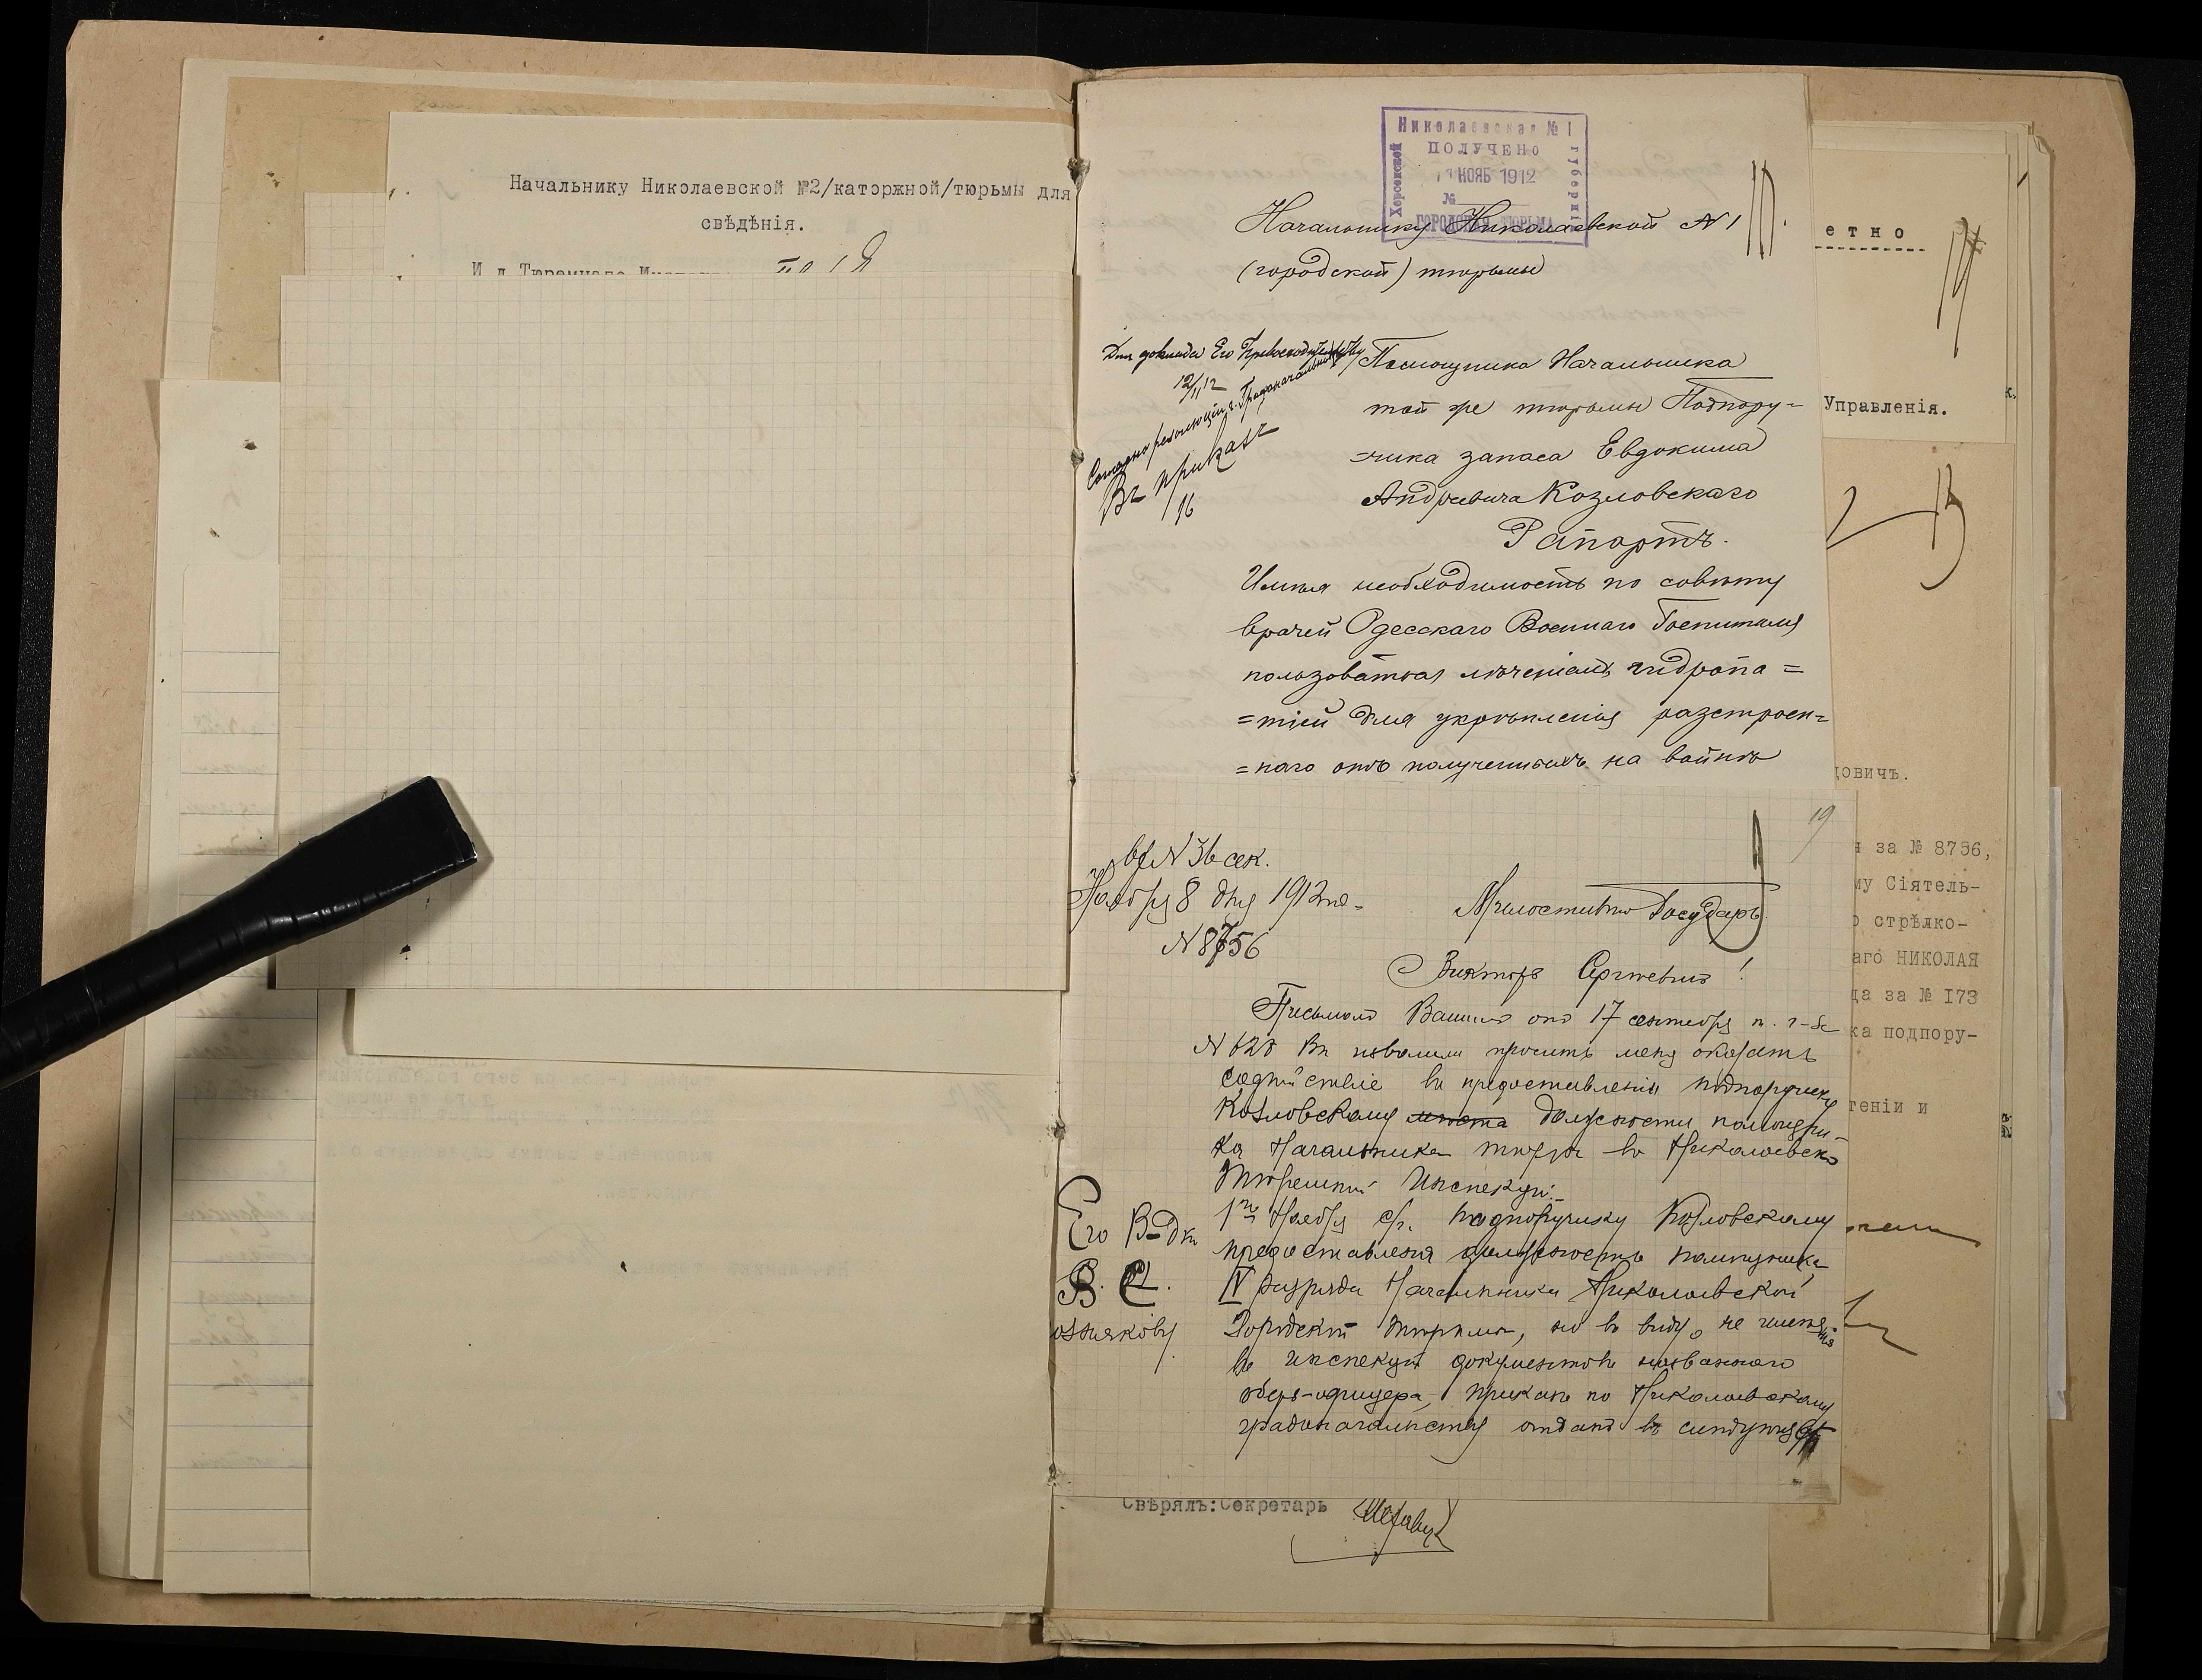 Начальнику Николаевской №2/каторжной/тюрьмы для
свѣдѣнія.
Николаевская № 1
Херсонской
губерніи
ПОЛУЧЕНО
НОЯБ 1912
№
ГОРОДСКАЯ ТЮРЬМА
Начальнику Николаевской N 1
(городской) тюрьмы
Для доклада Его Превосходительству
12/11 12
Согласно резолюціи г. Градоначальника
Въ приказъ
Помощника Начальника
той же тюрьмы Подпору=
=чика запаса Евдокима
Андреевича Козловскаго
Рапортъ.
Имѣя необходимость по совѣту
врачей Одесскаго Военнаго Госпиталя
пользоваться лѣченіемъ гидропа=
=тіей для укрѣпленія разстроен=
=наго отъ полученныхъ на войнѣ
19
Ноября 8 дня 1912
N 8756
Милостивый Государь
Викторъ Сергѣевичъ!
Письмомъ Вашимъ отъ 17 сентября
N 628 Вы изволили просить меня оказать
содѣйствіе въ предоставленіи подпоручику
Козловскому мѣста должности помощни-
ка Начальника тюрьмы въ Николаевской
Тюремной Инспекціи.
1го Ноября с/г. подпоручику Козловскому
предоставлена должность помощника
IV разряда Начальника Николаевской
Городской тюрьмы, но въ виду не имѣнія
въ инспекціи документовъ названнаго
оберъ-офицера, приказъ по Николаевскому
градоначальству отданъ въ слѣдующ
Его В-дію
В. С.
етно
Управленія.
довичъ.
за № 8756,
му Сіятель-
стрѣлко-
аго НИКОЛАЯ
да за № 173
ка подпору-
теніи и
Свѣрялъ: Секретарь